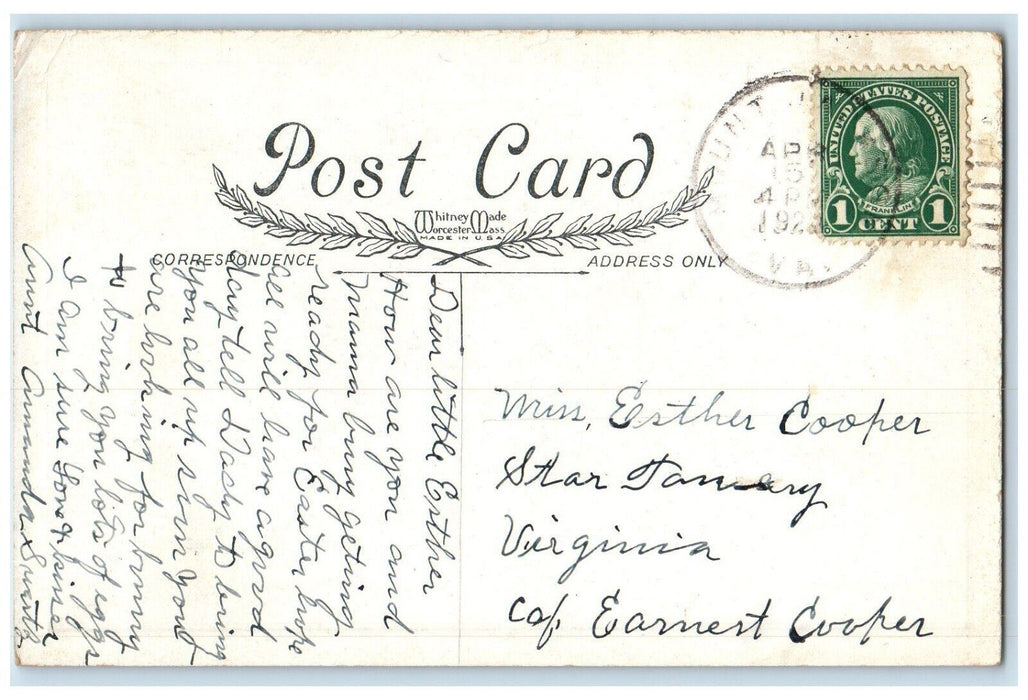 Post Card
Whitney Made
Worcester Mass.
MADE IN U.S.A.
CORRESPONDENCE
ADDRESS ONLY
UNITED STATES POSTAGE
FRANKLIN
1 CENT 1
APR
VA.
Dear little Esther
How are you and
mama busy geting
ready for Easter hope
all will have a good
day tell Dady to bring
you all up soon you
are looking for bunny
to bring you lots of eggs
I am sure love & kisses
Aunt Amanda
Miss, Esther Cooper
Star Tannery
Virginia
c/o, Earnest Cooper